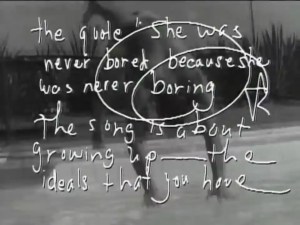 the quote "she was
never bored because she
was never boring
The song is about
growing up — the
ideals that you have